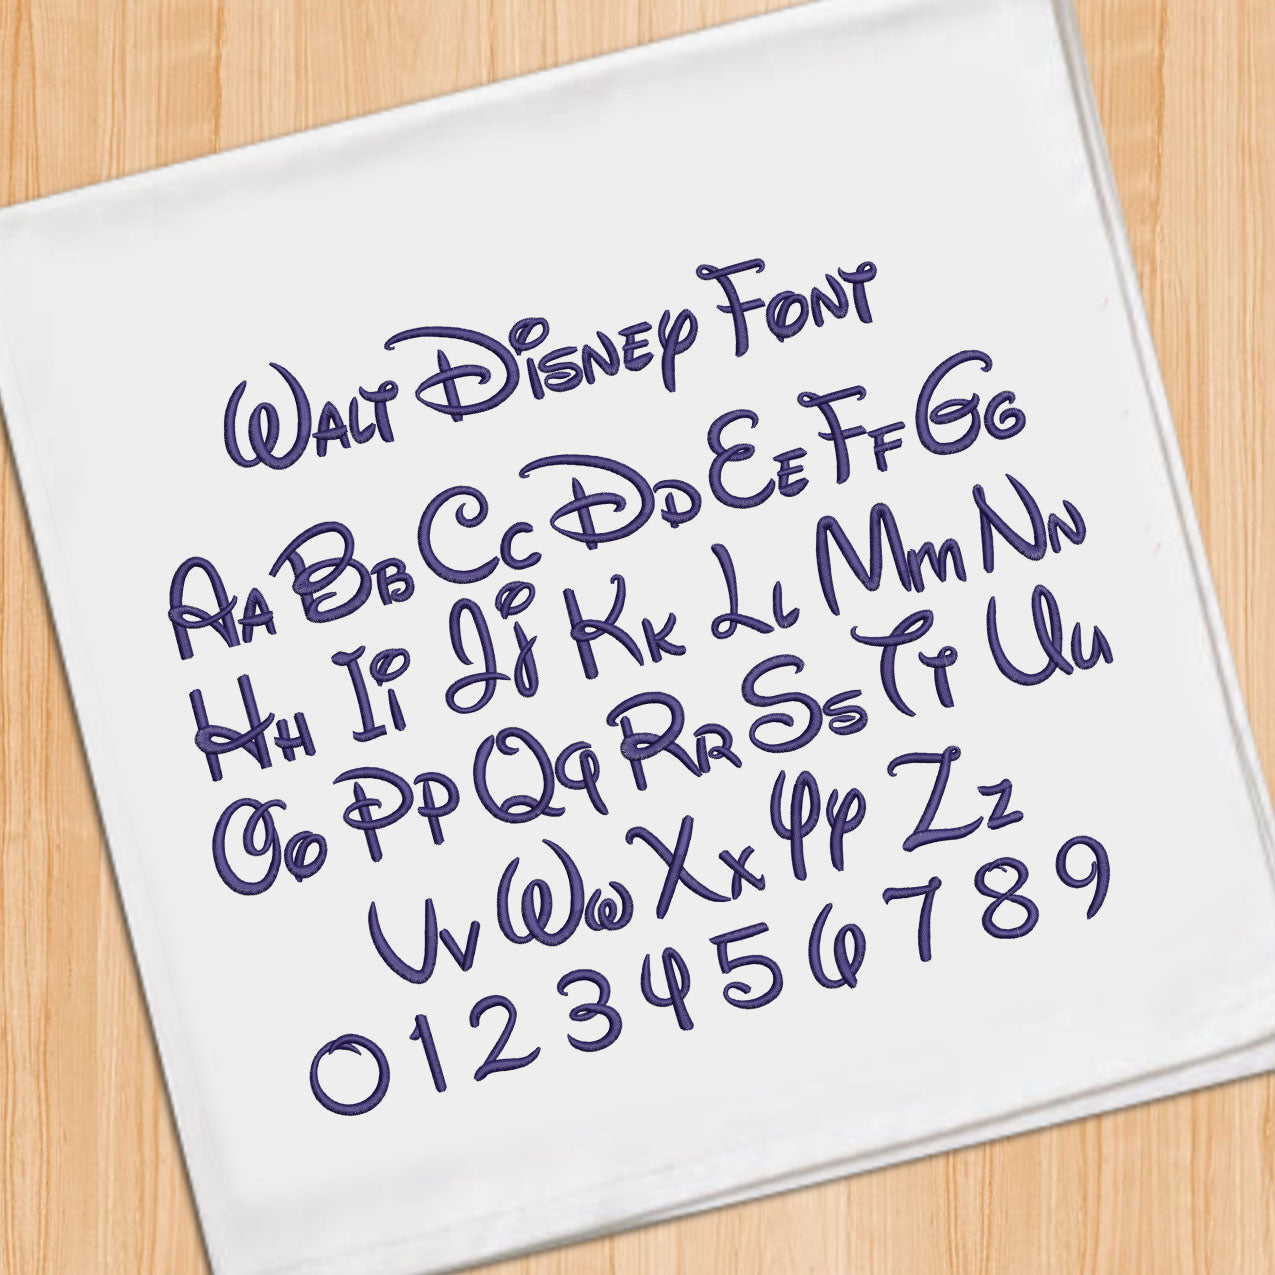 Walt Disney Font
Aa Bb Cc Dd Ee Ff Gg
Hh Ii Jj Kk Ll Mm Nn
Oo Pp Qq Rr Ss Tt Uu
Vv Ww Xx Yy Zz
0 1 2 3 4 5 6 7 8 9